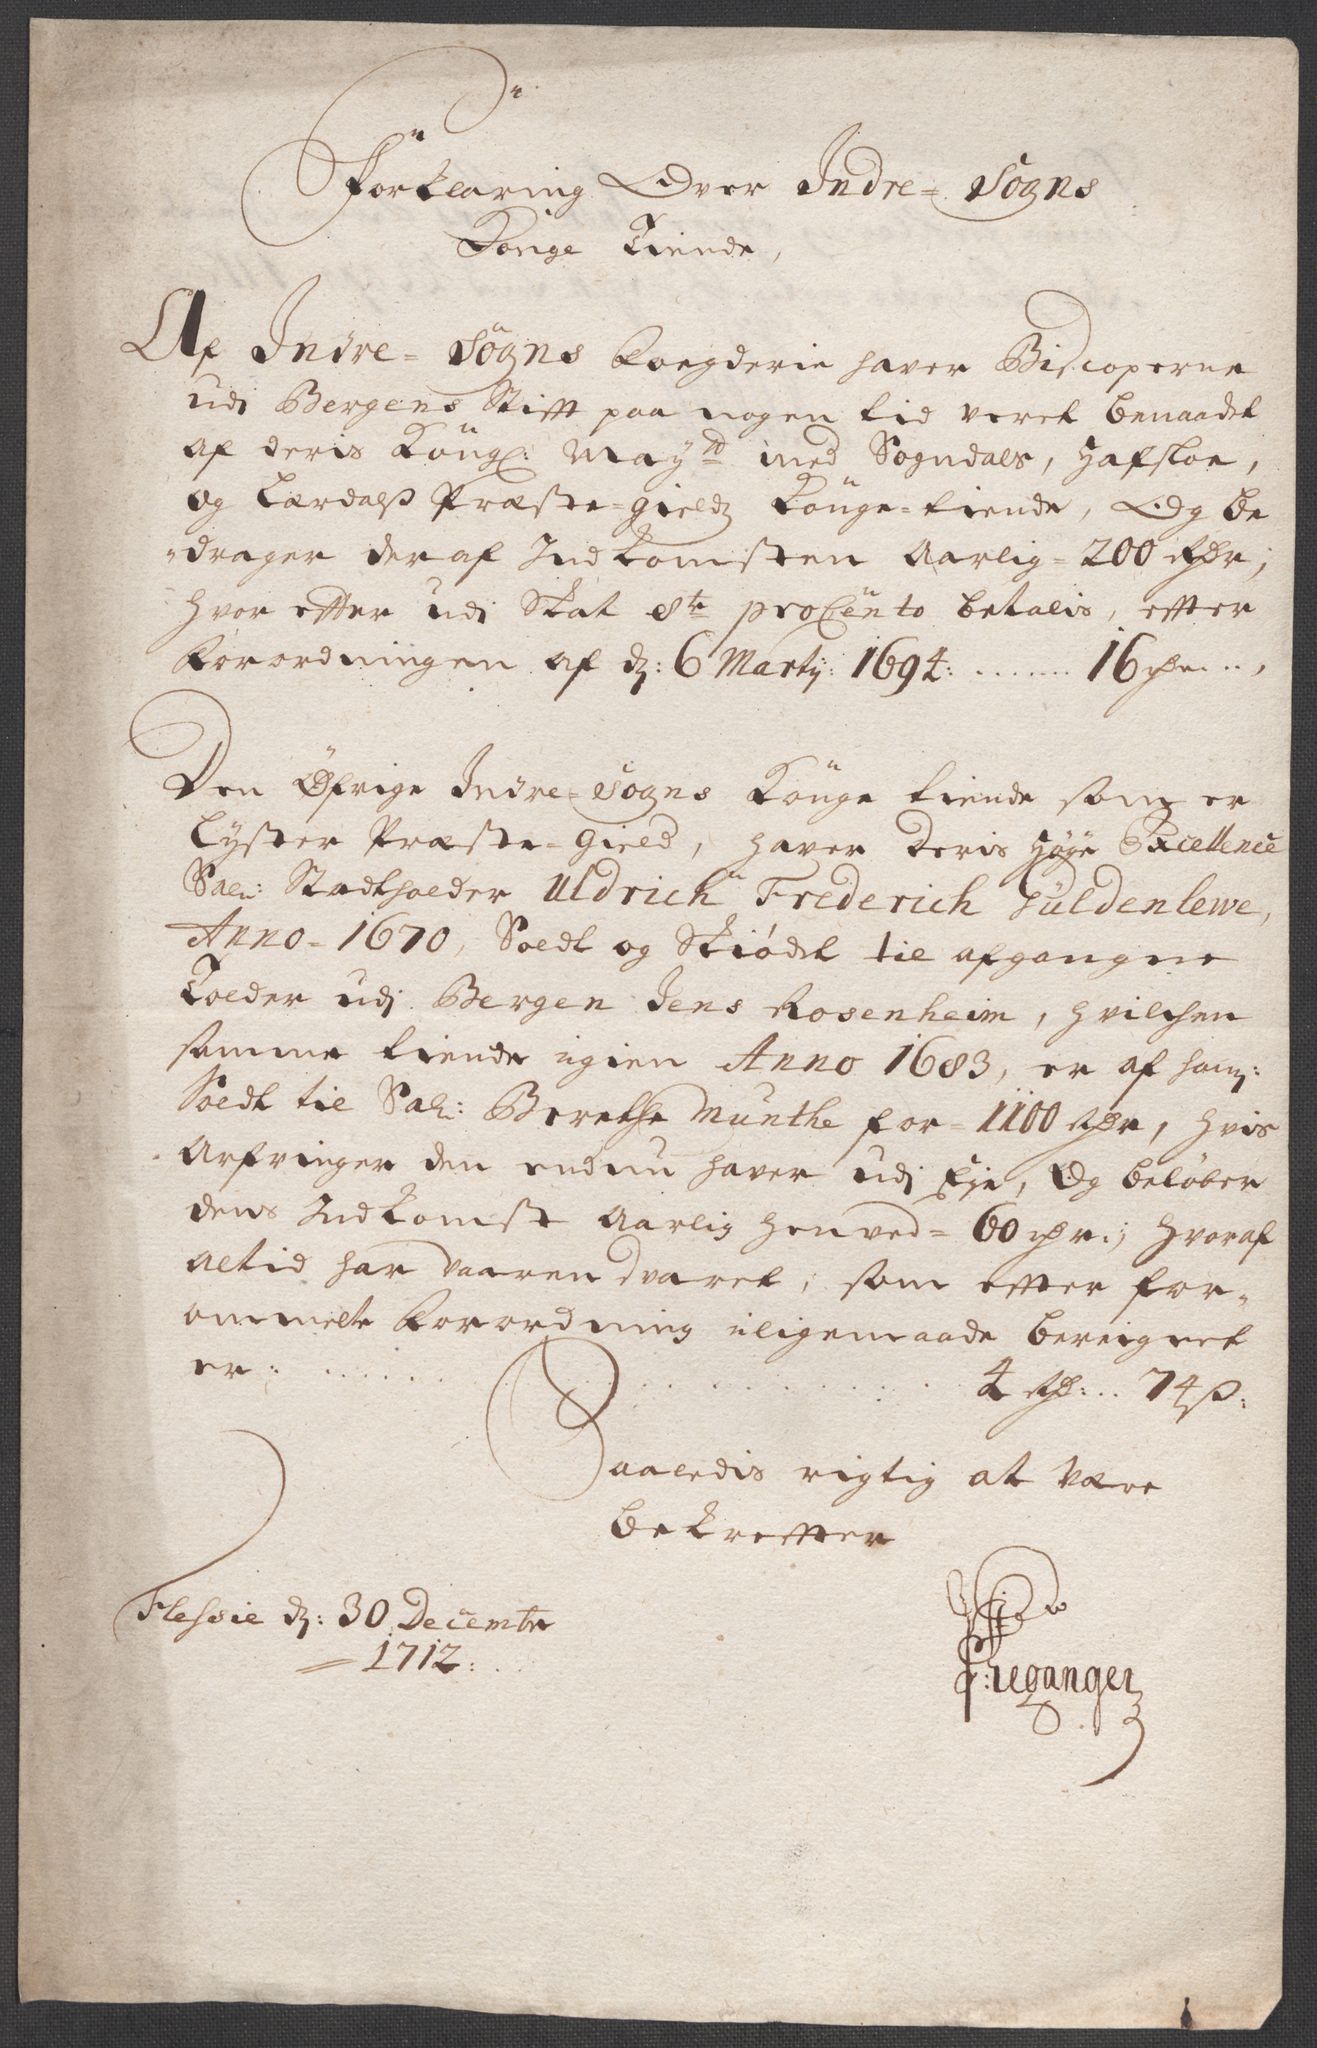 Forklaring Over Indre= Sogns
Konge Tiende,
Af Indre= Sogns Fogderie haver Biscoperne
udj Bergens Stift paa nogen tid veret benaadet
af deris Kongl: May:tt med Sogndals, Hafsloe,
og Lærdalß Præste=gields Konge=tiende, Og be
=drager deraf Indkomsten Aarlig= 200 Rdr;
hvor efter udj Skat 8te proCento betalis, efter
Forordningen af d: 6 Martij: 1694: ....... 16 rdr....,
Den Øfrige Indre=Sogns Konge tiende som er
Lyster Præste=Gield, haver Deris Høye Excellence
Sal: Stadtholder Uldrich Frederich Guldenlewe,
Anno= 1670, Soldt og Skiødet til afgangne
Tolder udj Bergen Jens Rosenheim, hvilchen
samme tiende igien Anno 1683, er af ham:
Soldt til Sal: Berethe Munthe for= 1100 Rdr, hvis
Arfvinger den endnu haver udj Eje, Og beløber
dens Indkomst Aarlig henved= 60 rdr:; hvoraf
altid har vaaren dvaret, som efter for=
ommelte Forordning iligemaade bereignet
er: ...... 4 Rd: .. 74 ß:
Saaledis rigtig at være
bekrefter
Flessie d: 30 Decembr
1712: